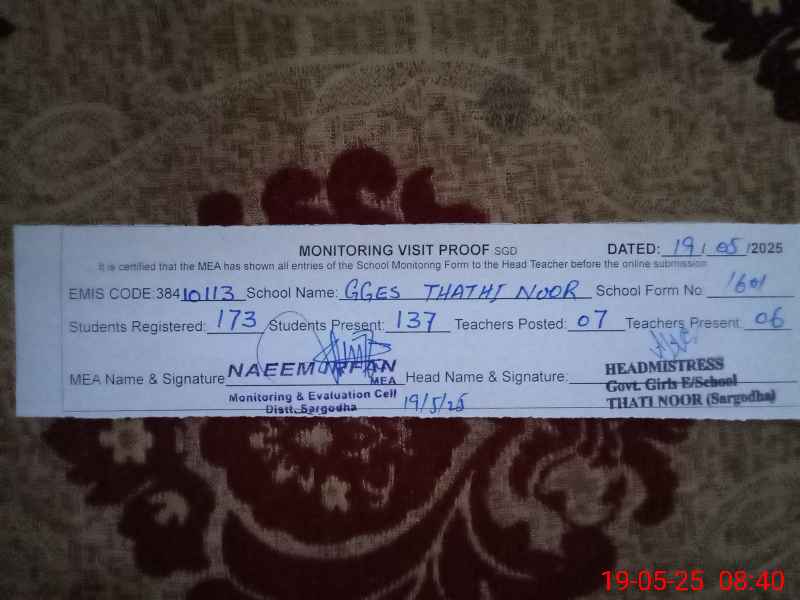 MONITORING VISIT PROOF SGD DATED: 19/05/2025
It is certified that the MEA has shown all entries of the School Monitoring Form to the Head Teacher before the online submission
EMIS CODE:38410113 School Name: GGES THATHI NOOR School Form No 1601
Students Registered: 173 Students Present: 137 Teachers Posted: 07 Teachers Present: 06
MEA Name & Signature NAEEM IRFAN MEA Head Name & Signature: HEADMISTRESS
Monitoring & Evaluation Cell Govt. Girls E/School
Distt. Sargodha 19/5/25 THATI NOOR (Sargodha)
19-05-25 08:40